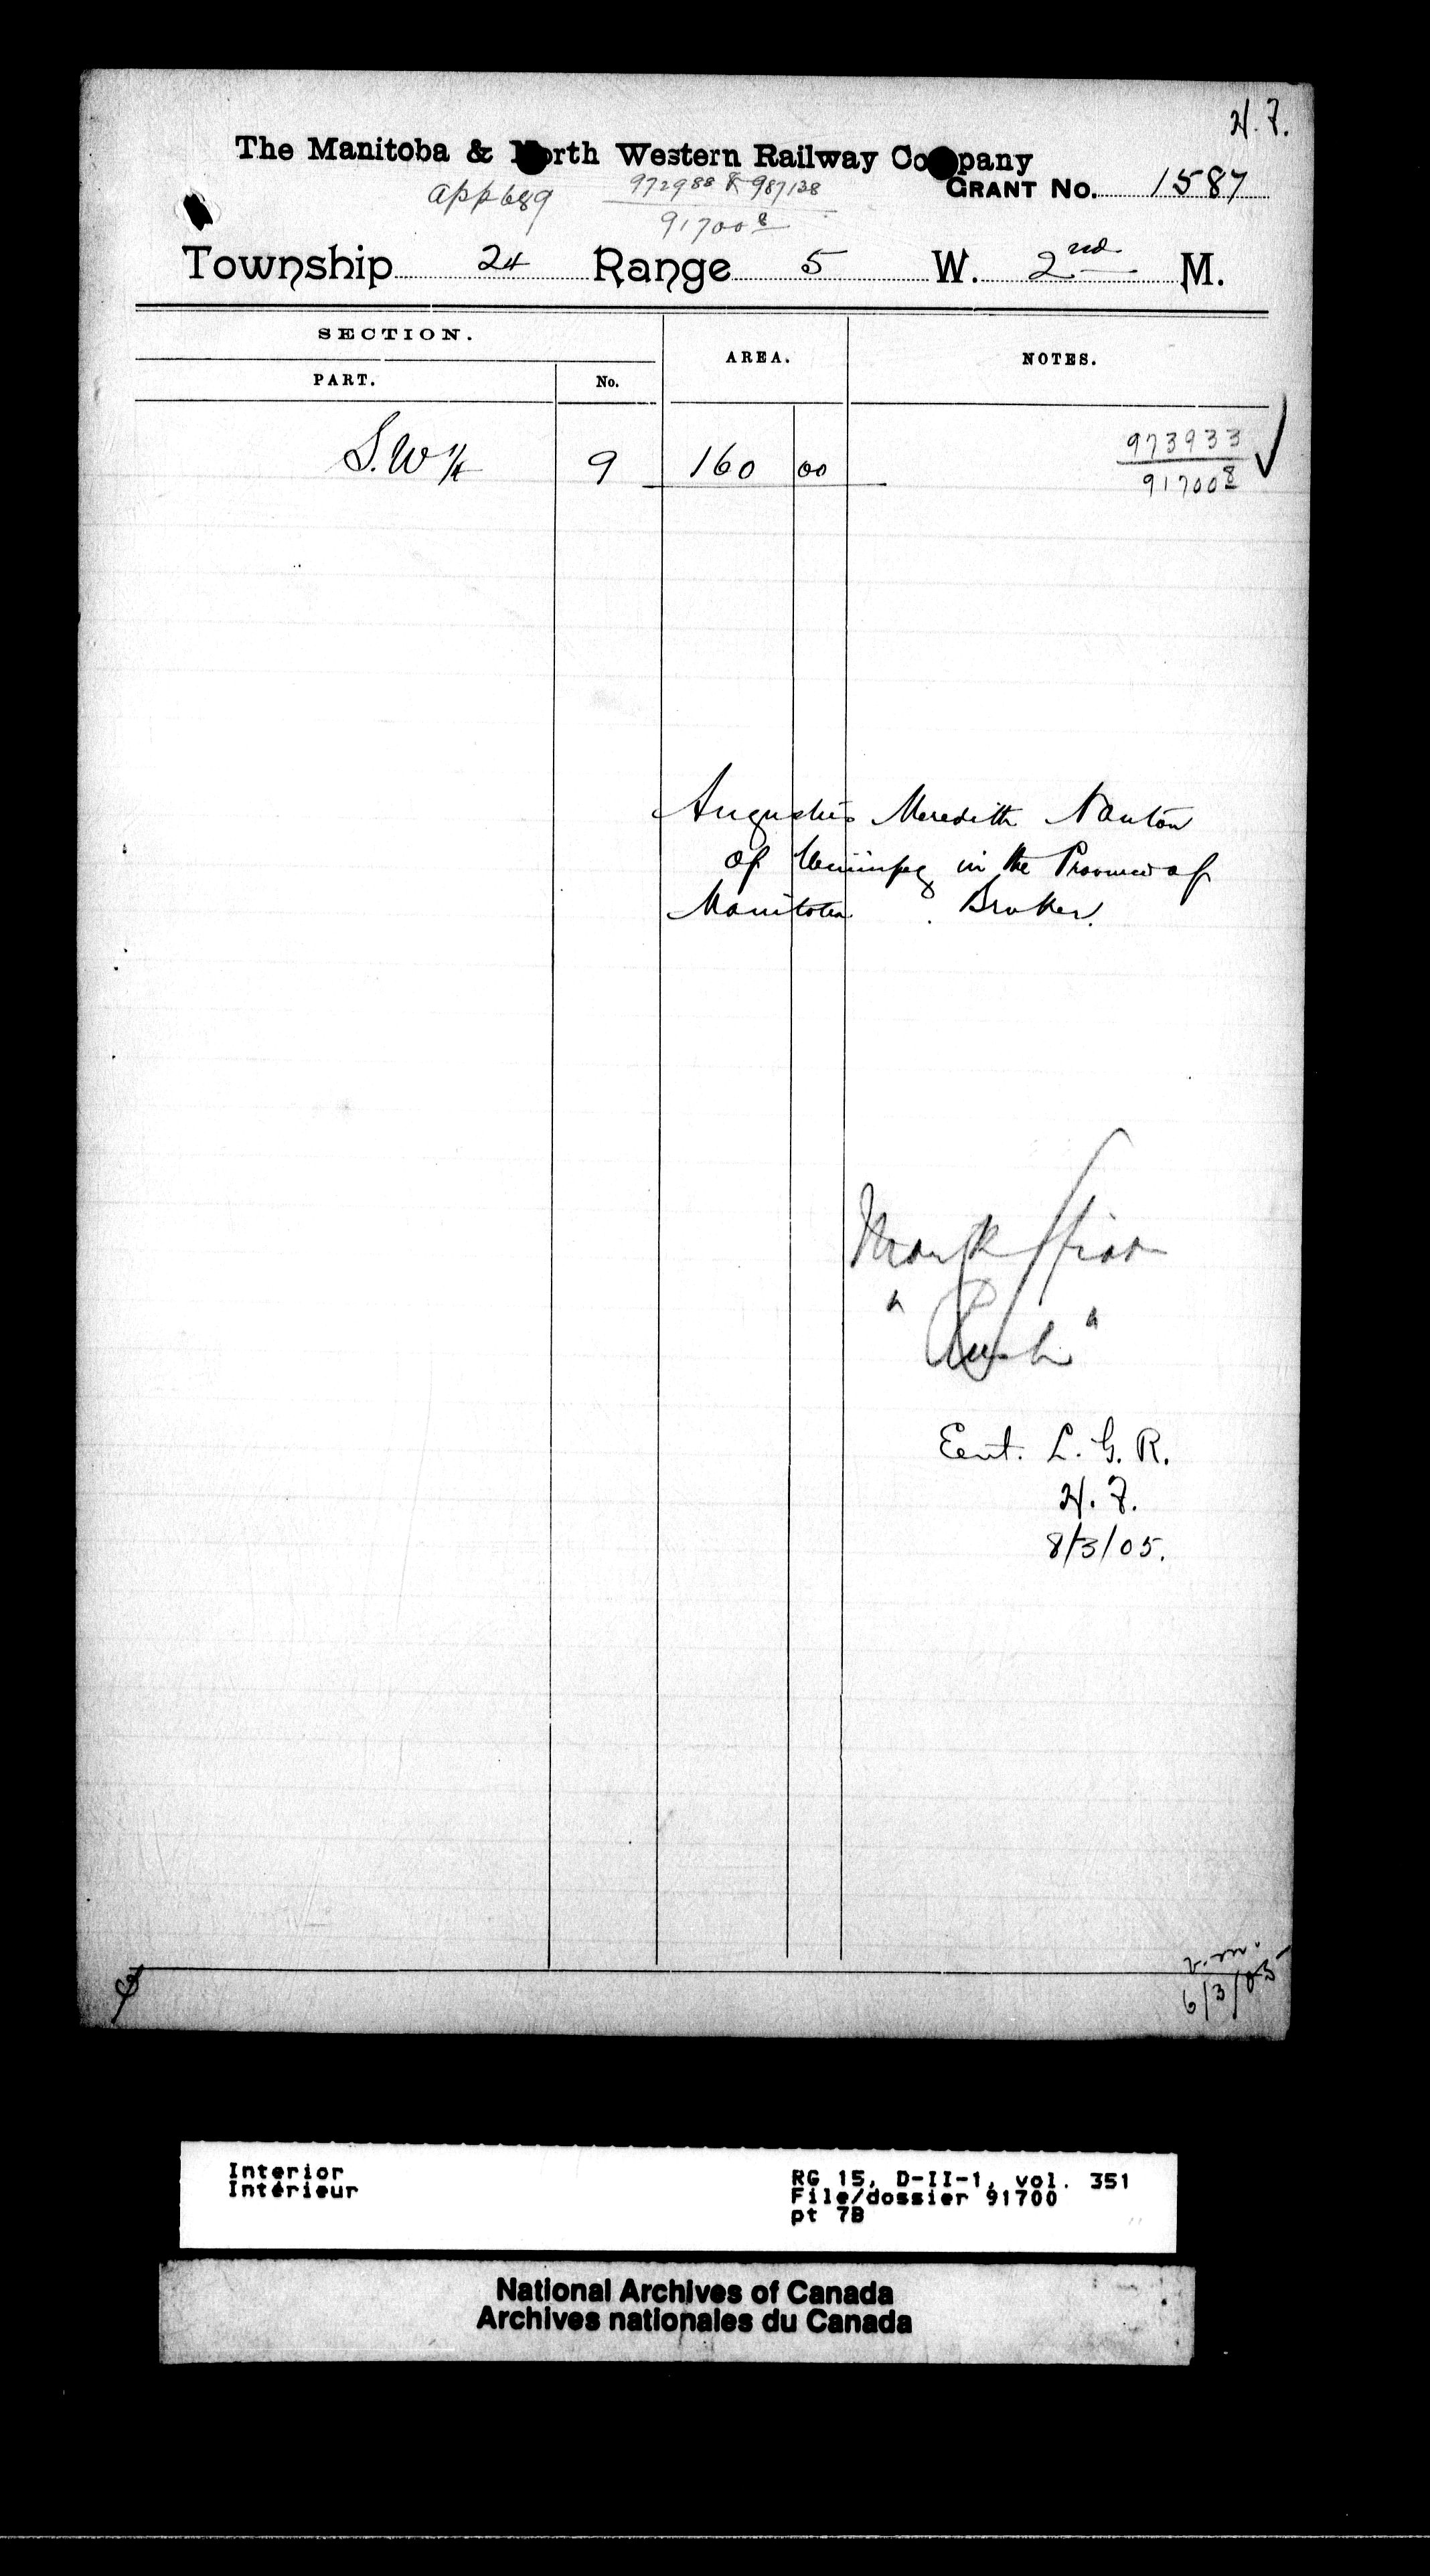 H. F.
The Manitoba & North Western Railway Company
app 689
972988 & 987138
GRANT No. 1587
91700 8
Township 24 Range 5 W. 2nd M.
SECTION.
AREA.
NOTES.
PART.
No.
S.W 1/4 9 160 00
973933
91700 8
Augustus Meredith Nanton
of Winnipeg in the Province of
Manitoba. Broker.
Mark
"Rush"
Ent. L. G. R.
H. F.
8/3/05.
v. m.
6/3/05
Interior
Intérieur
RG 15, D-II-1, vol. 351
File/dossier 91700
pt 7B
National Archives of Canada
Archives nationales du Canada